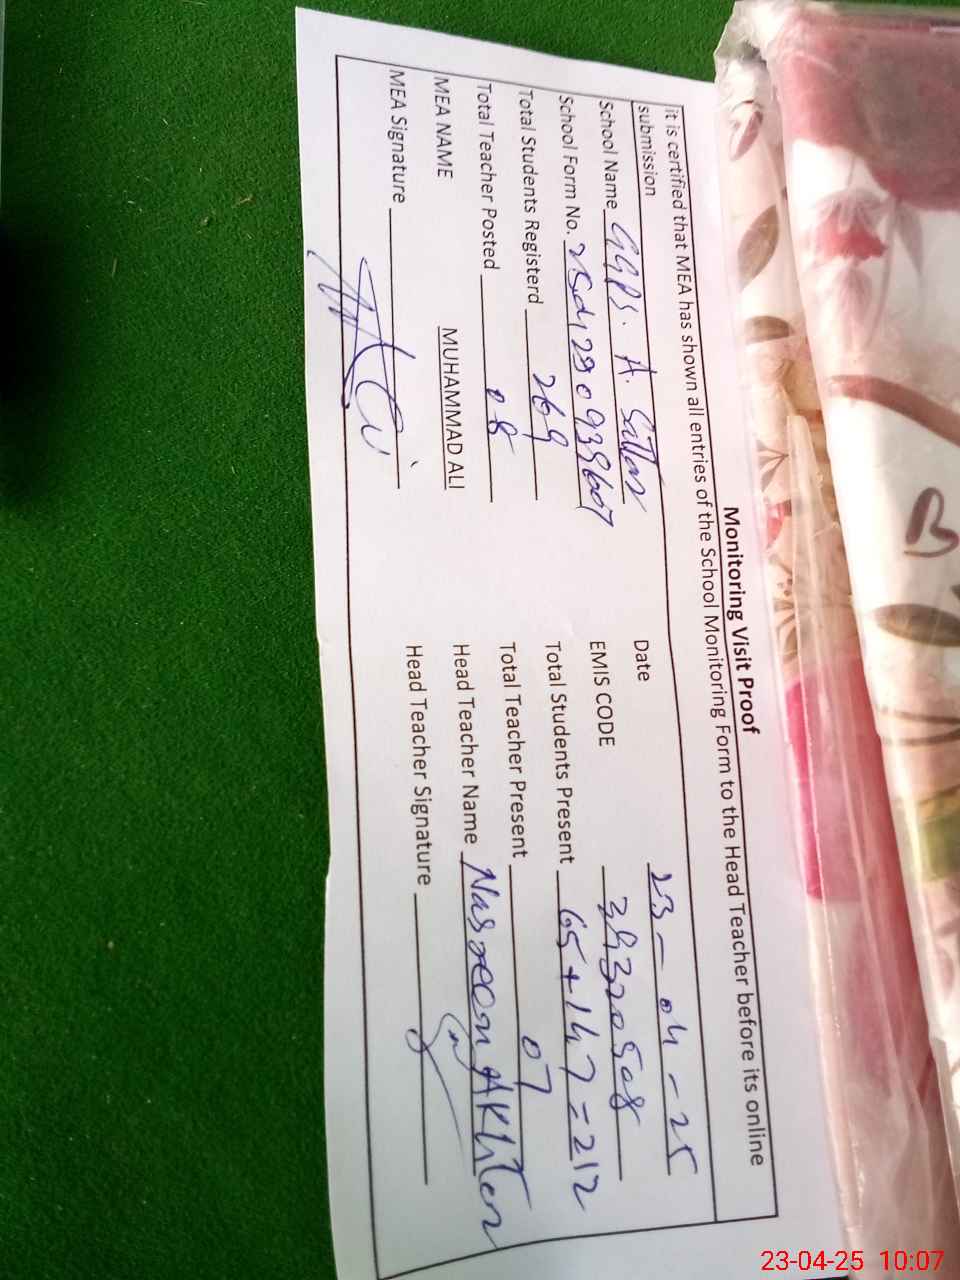 Monitoring Visit Proof
it is certified that MEA has shown all entries of the School Monitoring Form to the Head Teacher before its online
submission
Date 23-04-25
School Name GGPS. A. Sattar
EMIS CODE 38320508
School Form No.
Total Students Present 65+147=212
Total Students Registerd 269
Total Teacher Present 07
Total Teacher Posted 08
Head Teacher Name Nasreen Akhter
MEA NAME MUHAMMAD ALI
Head Teacher Signature
MEA Signature
23-04-25 10:07